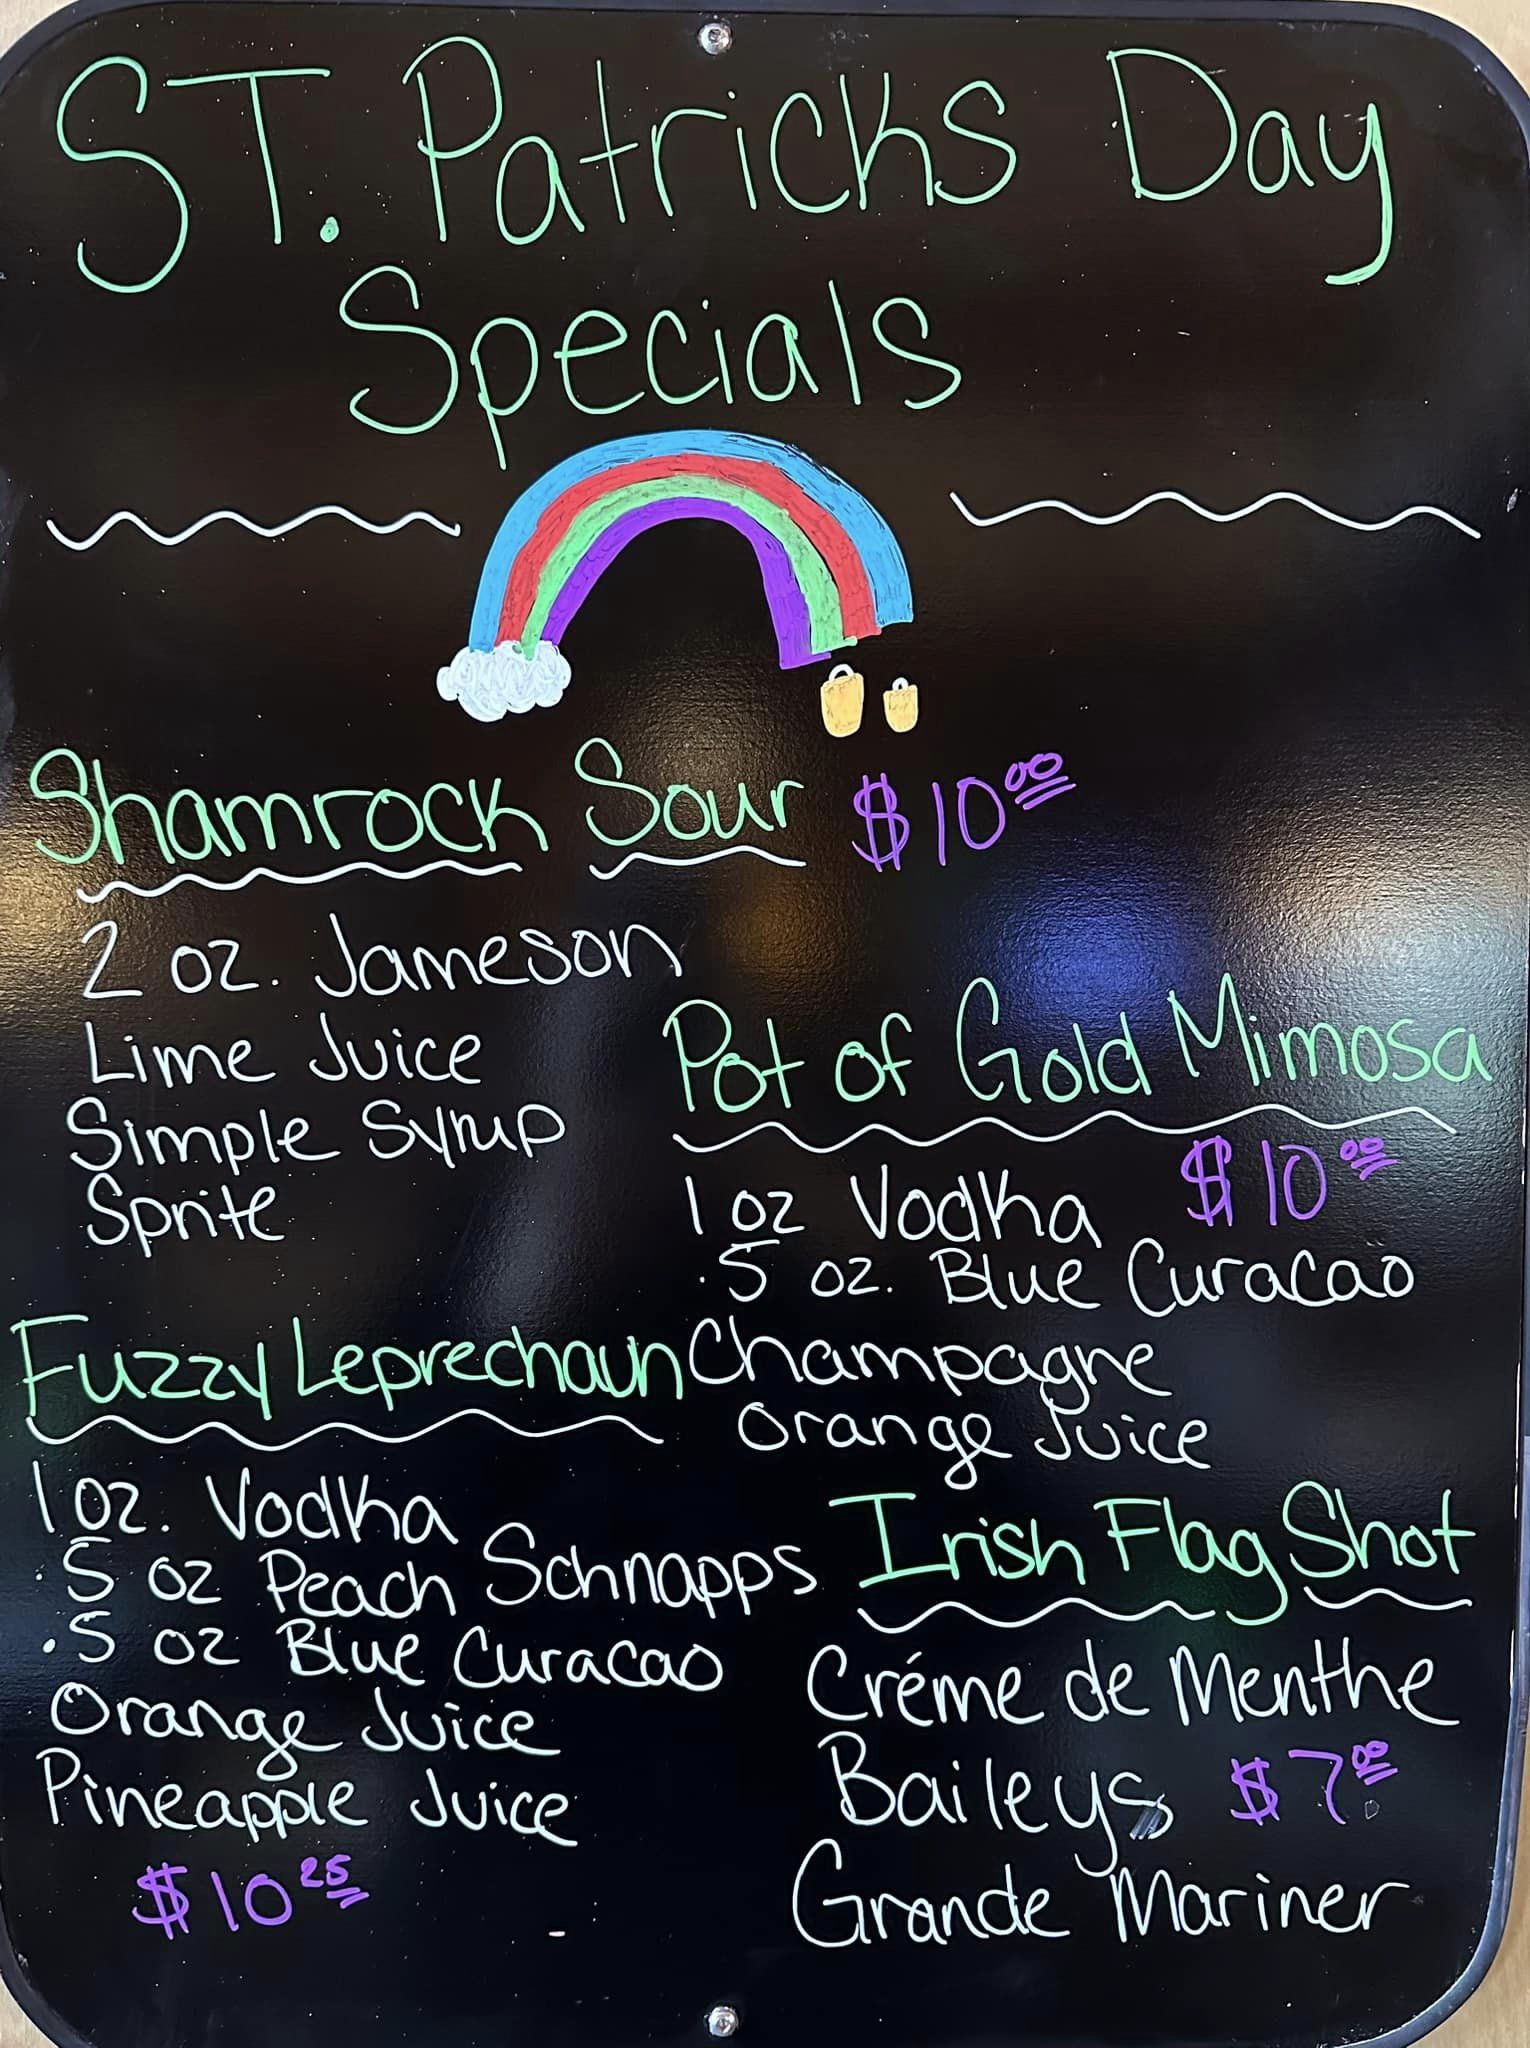 ST. Patricks Day
Specials
Shamrock Sour $10.00
2 oz. Jameson
Lime Juice
Simple Syrup
Sprite
Pot of Gold Mimosa
$10.00
1 oz Vodka
.5 oz. Blue Curacao
Champagne
Orange Juice
Fuzzy Leprechaun
1 oz. Vodka
.5 oz Peach Schnapps
.5 oz Blue Curacao
Orange Juice
Pineapple Juice
$10.25
Irish Flag Shot
Créme de Menthe
Baileys $7.00
Grande Mariner